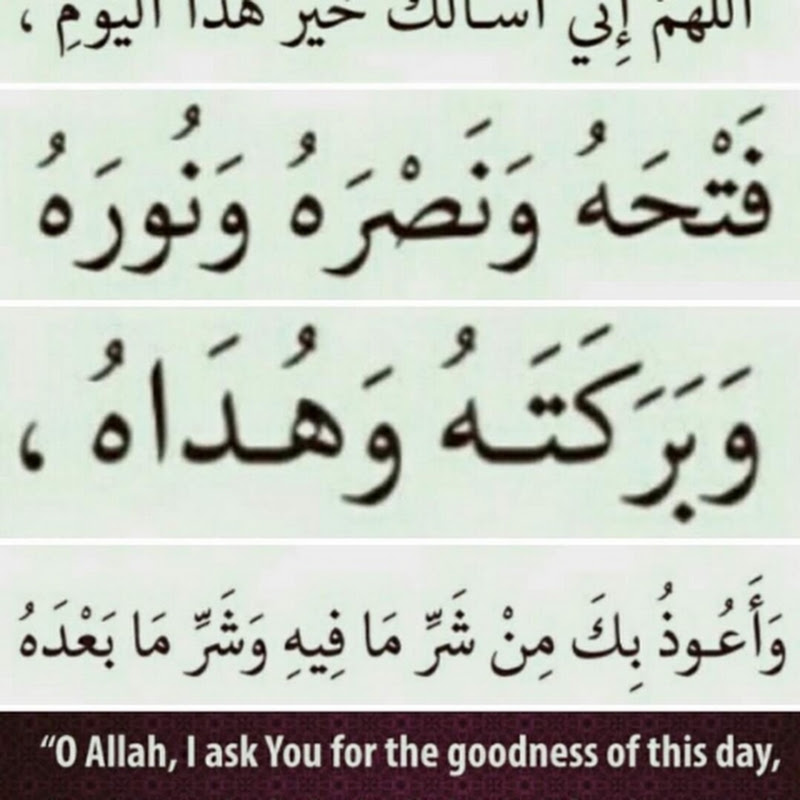 اللهم إِني أسألك خير هذا اليومِ ،
فَتْحَهُ وَنَصْرَهُ وَنُورَهُ
وَبَرَكَتَهُ وَهُدَاهُ ،
وَأَعُوذُ بِكَ مِنْ شَرِّ مَا فِيهِ وَشَرِّ مَا بَعْدَهُ
“O Allah, I ask You for the goodness of this day,